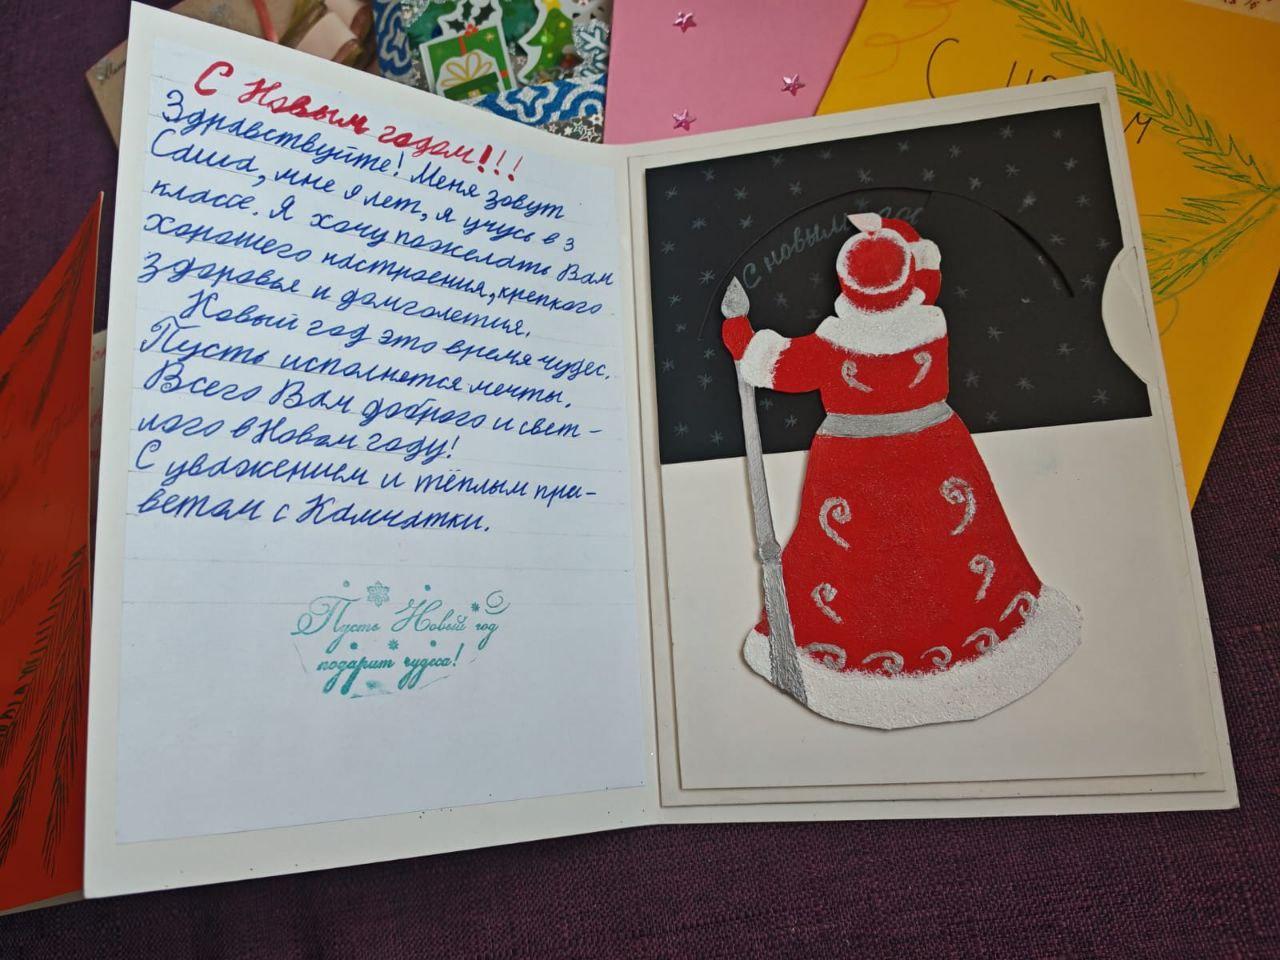 С Новым годом!!!
Здравствуйте! Меня зовут
Саша, мне 9 лет, я учусь в 3
классе. Я хочу пожелать Вам
хорошего настроения, крепкого
здоровья и долголетия.
Новый год это время чудес.
Пусть исполнется мечты.
Всего Вам доброго и свет-
лого в Новом году!
С уважением и тёплым при-
ветом с Камчатки.
Пусть Новый год
подарит чудеса!
С новым го
С но
м